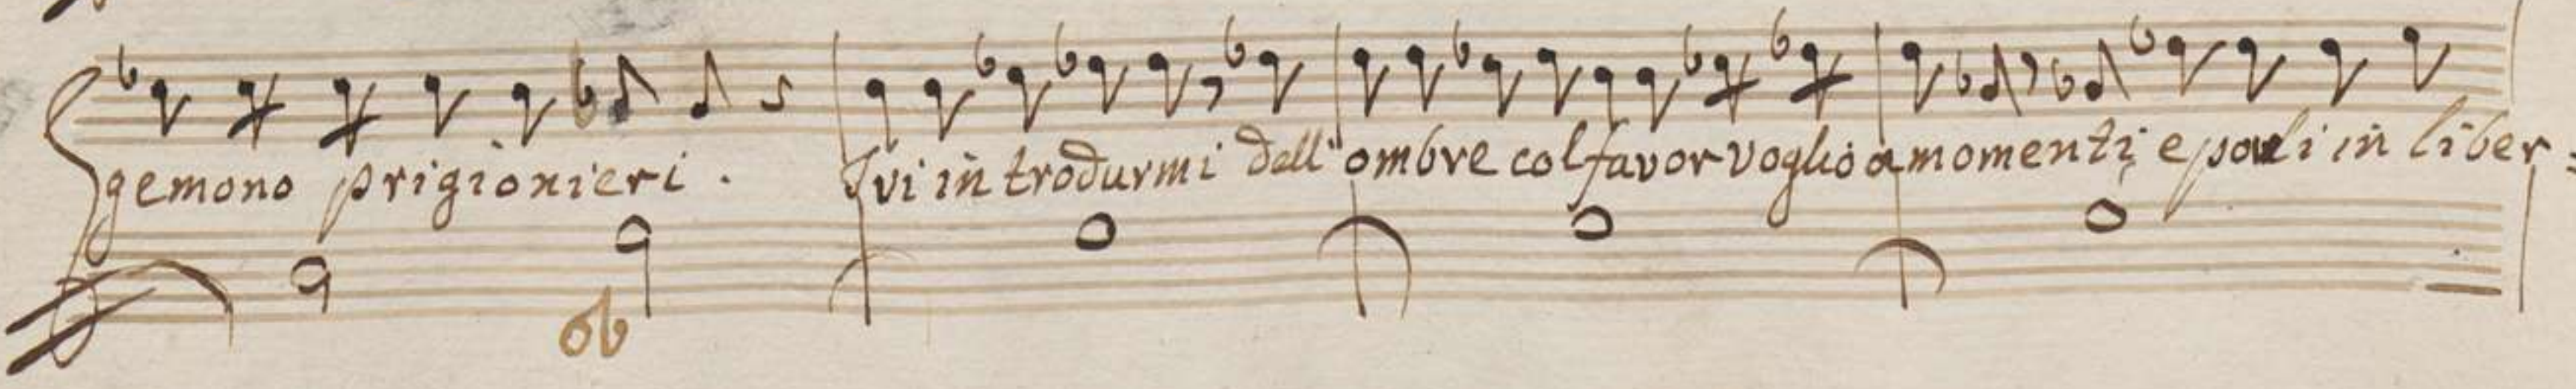 gemono prigionieri. Ivi introdurmi dell'ombre col favor voglio a momenti; e porli in liber=
6b